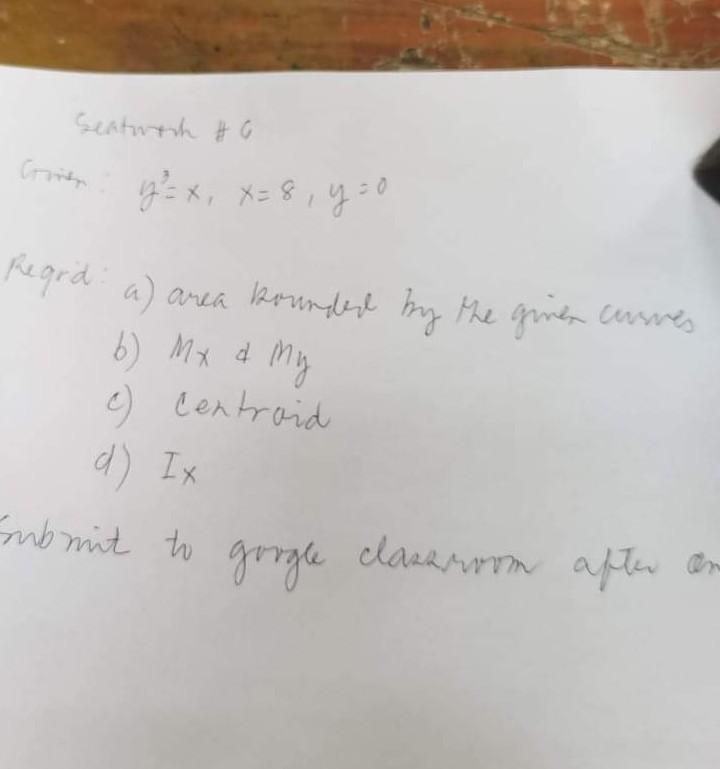 Seatwork # 6
Given: y³=x, x=8, y=0
Reqr'd: a) area bounded by the given curves
b) Mx & My
c) Centroid
d) Ix
Submit to google classroom after